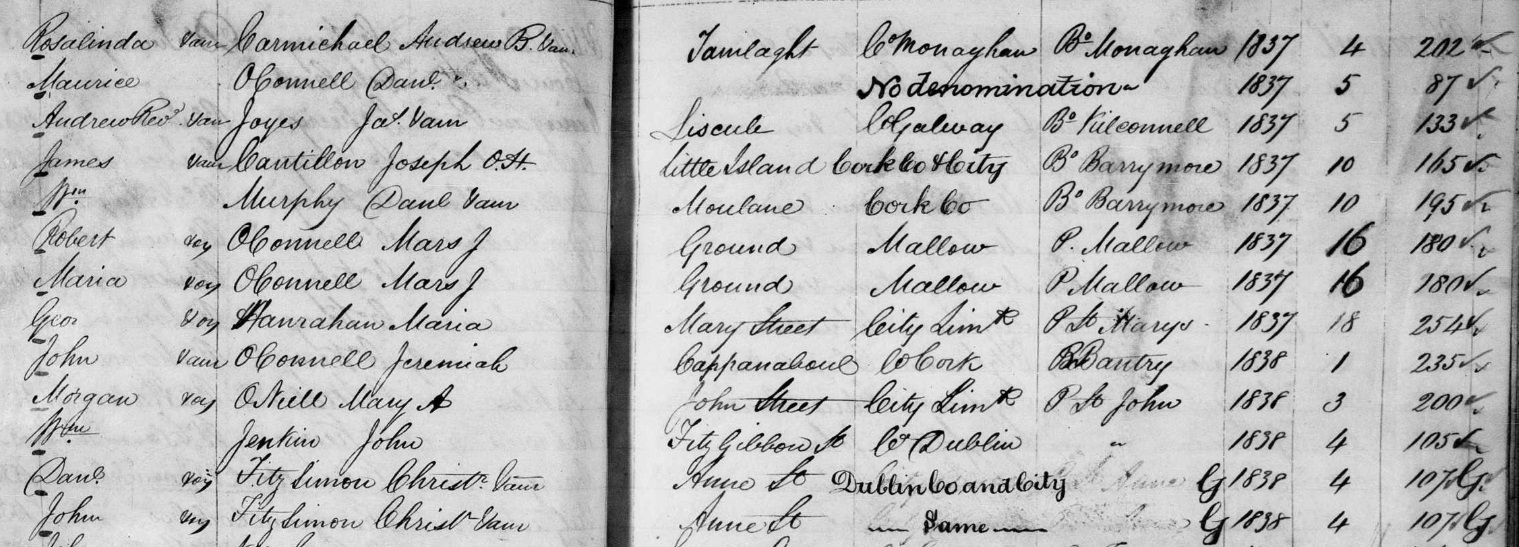 Rosalinda &am Carmichael Andrew B. &am. Tamlaght Co Monaghan Bo Monaghan 1837 4 202
Maurice OConnell Danl &. No denomination 1837 5 87
Andrew Revd &am Joyes Jas. &am Liscule Co Galway Bo Kilconnell 1837 5 133
James &am Cantillon Joseph O.H. Little Island Cork Co & City Bo Barrymore 1837 10 165
Wm Murphy Danl &am Moulane Cork Co Bo Barrymore 1837 10 195
Robert &oy OConnell Mars J Ground Mallow P. Mallow 1837 16 180
Maria &oy OConnell Mars J Ground Mallow P Mallow 1837 16 180
Geo &oy Hanrahan Maria Mary Street City Limk P St Marys 1837 18 254
John &am OConnell Jeremiah Cappanaboul Co Cork Bo Bantry 1838 1 235
Morgan &oy ONiell Mary A John Street City Limk P St John 1838 3 200
Wm Jenkin John FitzGibbon St Co Dublin " 1838 4 105
Danl. &oy FitzSimon Christr &am Anne St Dublin Co and City St Anne G 1838 4 107 G
John &oy FitzSimon Christr &am Anne St Same G 1838 4 107 G